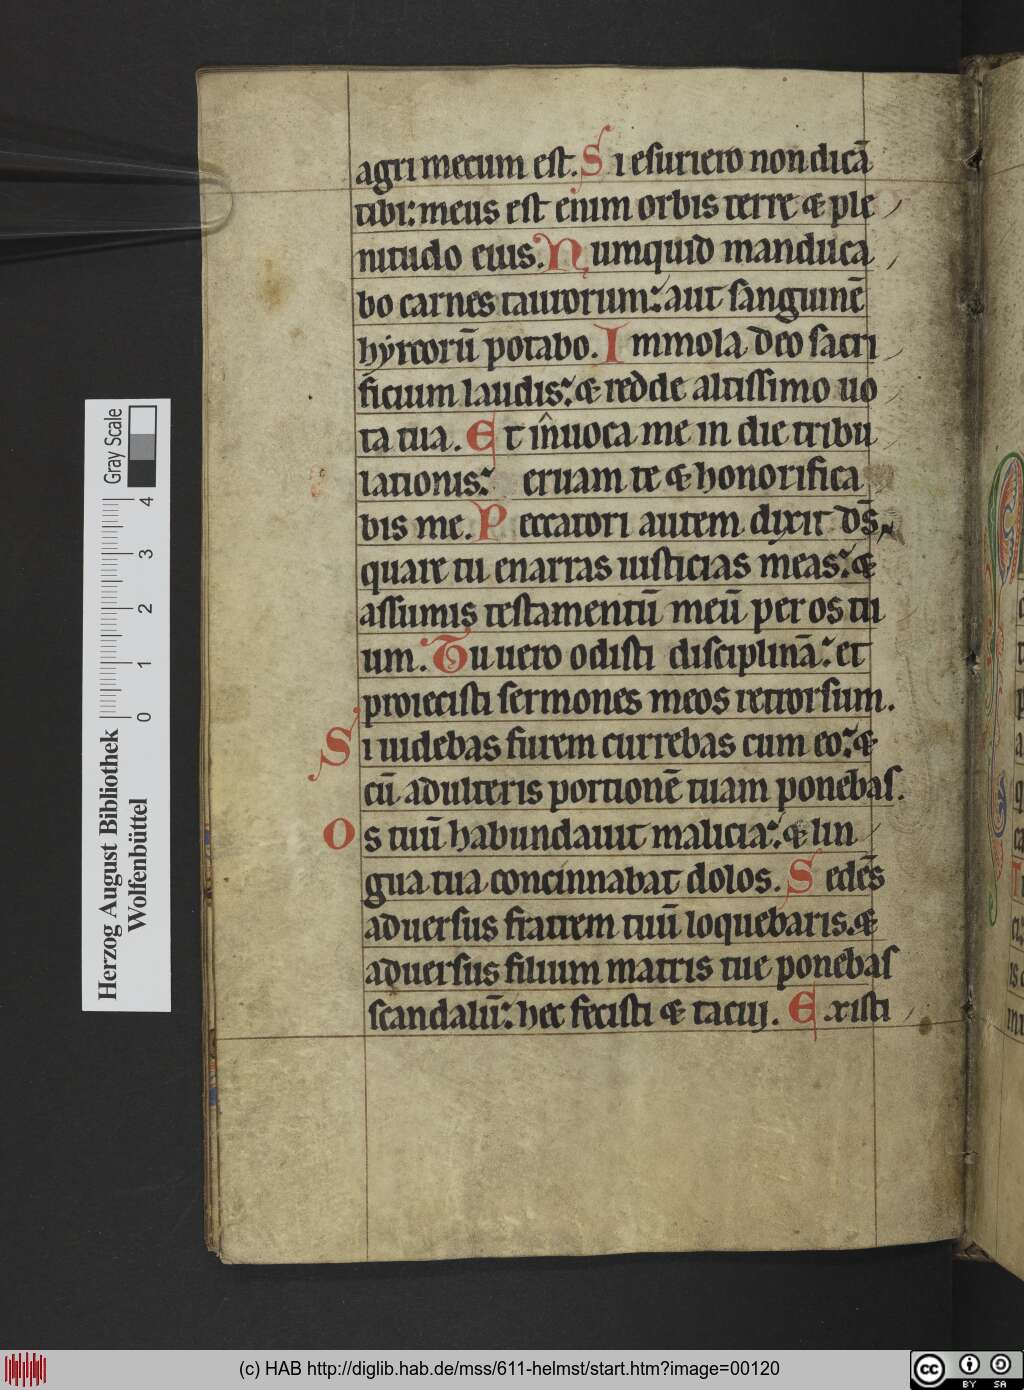 agri mecum est. Si esuriero non dicā
tibi: meus est enim orbis terre & ple
nitudo eius. Numquid manduca
bo carnes taurorum: aut sanguinē
hyrcorū potabo. Immola deo sacri
ficium laudis: & redde altissimo uo
ta tua. Et īnuoca me in die tribu
lationis: eruam te & honorifica
bis me. Peccatori autem dixit d̄s,
quare tu enarras iusticias meas: &
assumis testamentū meū per os tu
um. Tu uero odisti disciplinā: et
proiecisti sermones meos retrorsum.
Si uidebas furem currebas cum eo: &
cū adulteris portionē tuam ponebas.
Os tuū habundauit malicia: & lin
gua tua concinnabat dolos. Sedēs
aduersus fratrem tuū loquebaris. &
aduersus filium matris tue ponebas
scandalū: hec fecisti & tacuj. Existi
Gray Scale
4
3
2
1
0
Herzog August Bibliothek
Wolfenbüttel
(c) HAB http://diglib.hab.de/mss/611-helmst/start.htm?image=00120
cc BY SA